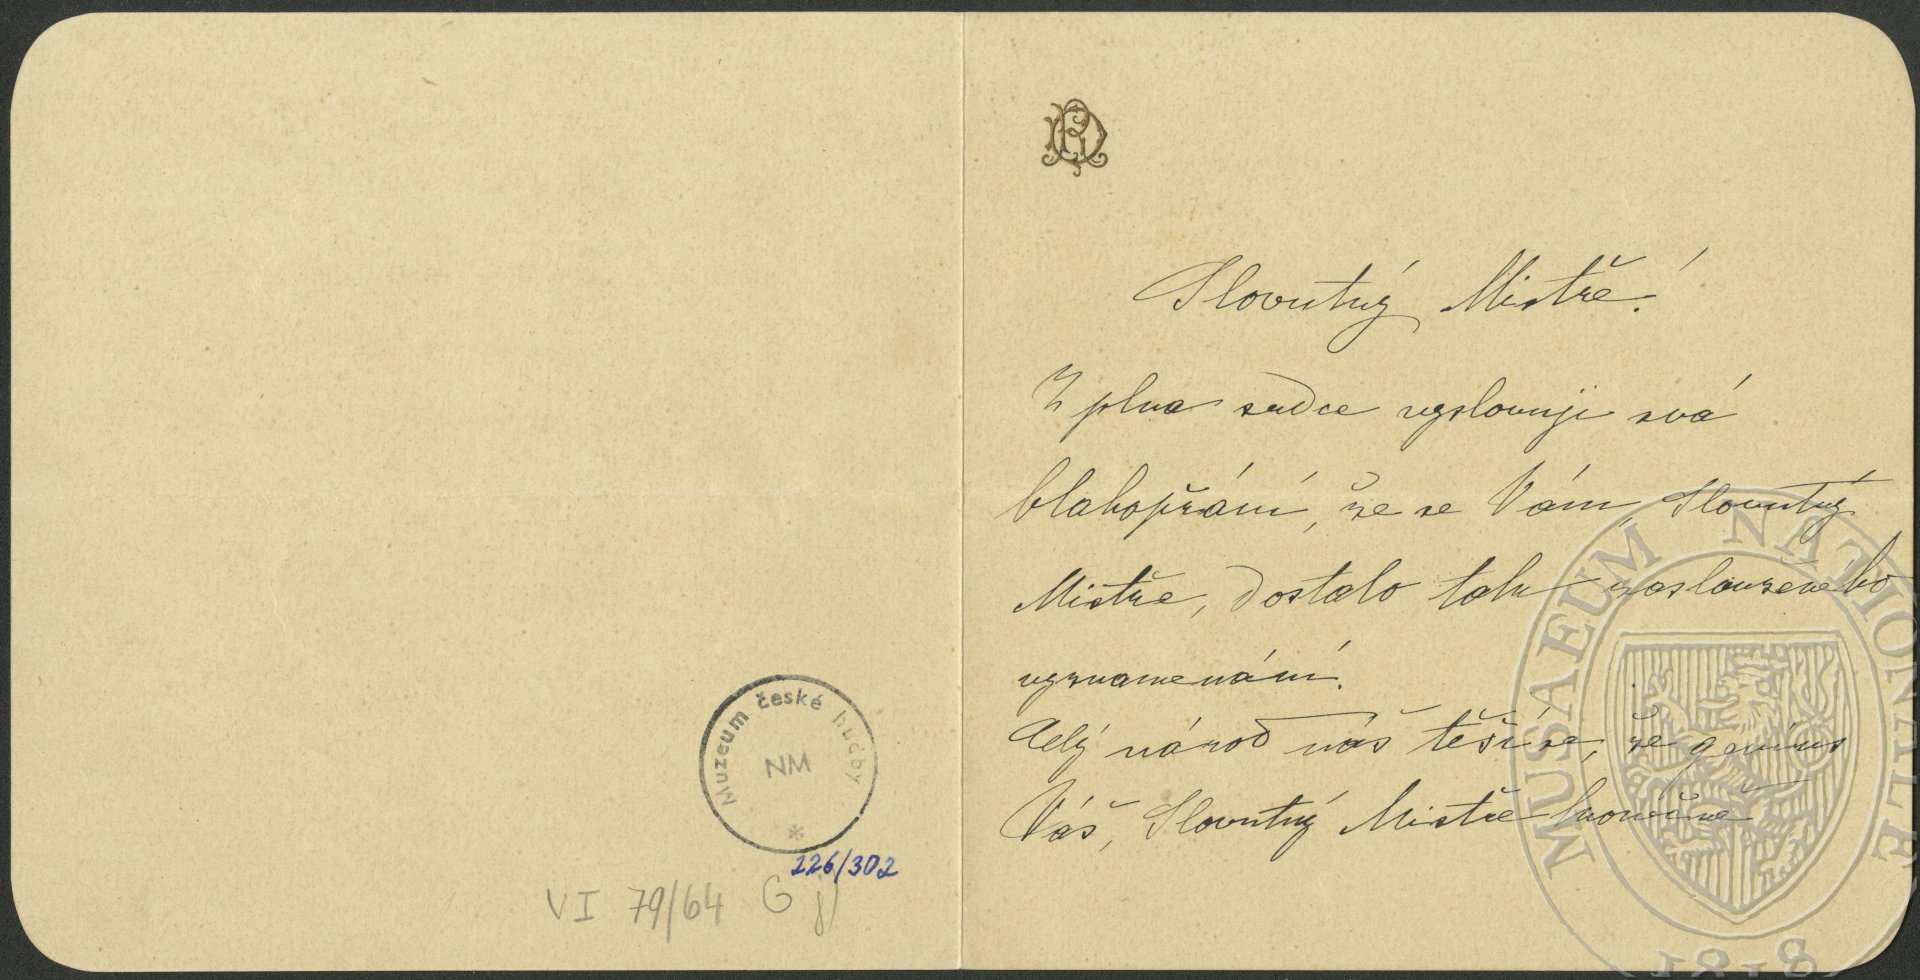 Slovutný Mistře!
Z plna srdce vyslovuji svá
blahopřání, že se Vám, Slovutný
Mistře, dostalo tak zaslouženého
vyznamenání.
Celý národ náš těší se, že genius
Váš, Slovutný Mistře konečně
Muzeum české hudby
NM
*
226/302
VI 79/64 G
MUSAEUM NATIONALE
1818